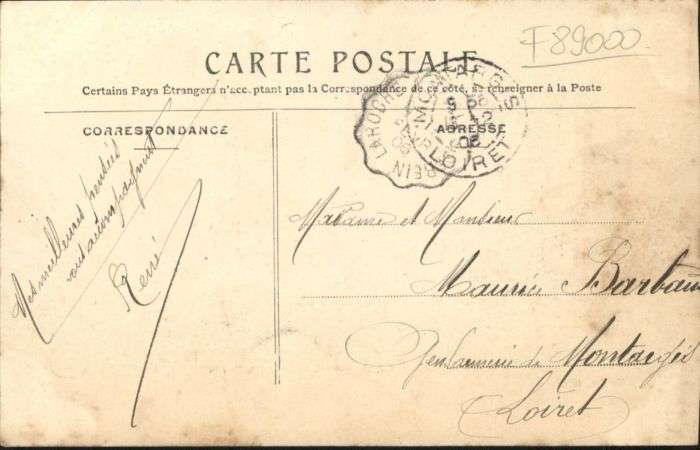 F89000
CARTE POSTALE
Certains Pays Étrangers n'acceptant pas la Correspondance de ce côté, se renseigner à la Poste
CORRESPONDANCE
ADRESSE
LAROCHE
LOIRET
Mes meilleures pensées
vous accompagnent
René
Madame et Monsieur
Maurice Barbaux
Gendarmerie de Montargis
Loiret